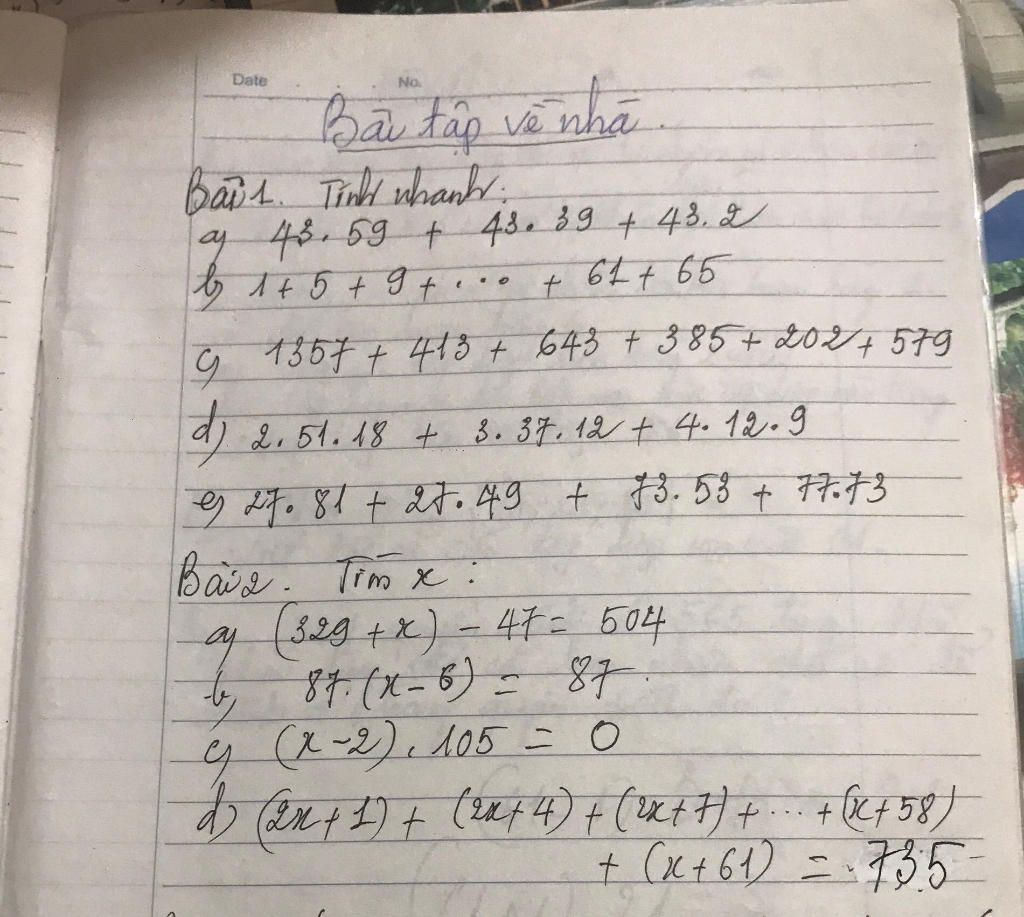 Date . . . No.
Bài tập về nhà.
Bài 1. Tính nhanh:
a) 43.59 + 43.39 + 43.2
b) 1 + 5 + 9 + ... + 61 + 65
c) 1357 + 413 + 643 + 385 + 202 + 579
d) 2.51.18 + 3.37.12 + 4.12.9
e) 27.81 + 27.49 + 73.53 + 77.73
Bài 2. Tìm x:
a) (329 + x) - 47 = 504
b) 87.(x - 6) = 87.
c) (x - 2).105 = 0
d) (2x + 1) + (2x + 4) + (2x + 7) + ... + (x + 58)
+ (x + 61) = 735